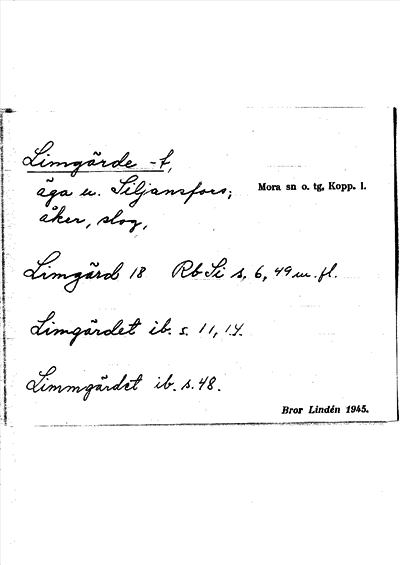 Limgärde -t,
äga u. Siljansfors; Mora sn o. tg, Kopp. l.
åker, slog,
Limgärd 18 Rb Si s. 6, 49 m. fl.
Limgärdet ib. s. 11, 14.
Limmgärdet ib. s. 48.
Bror Lindén 1945.